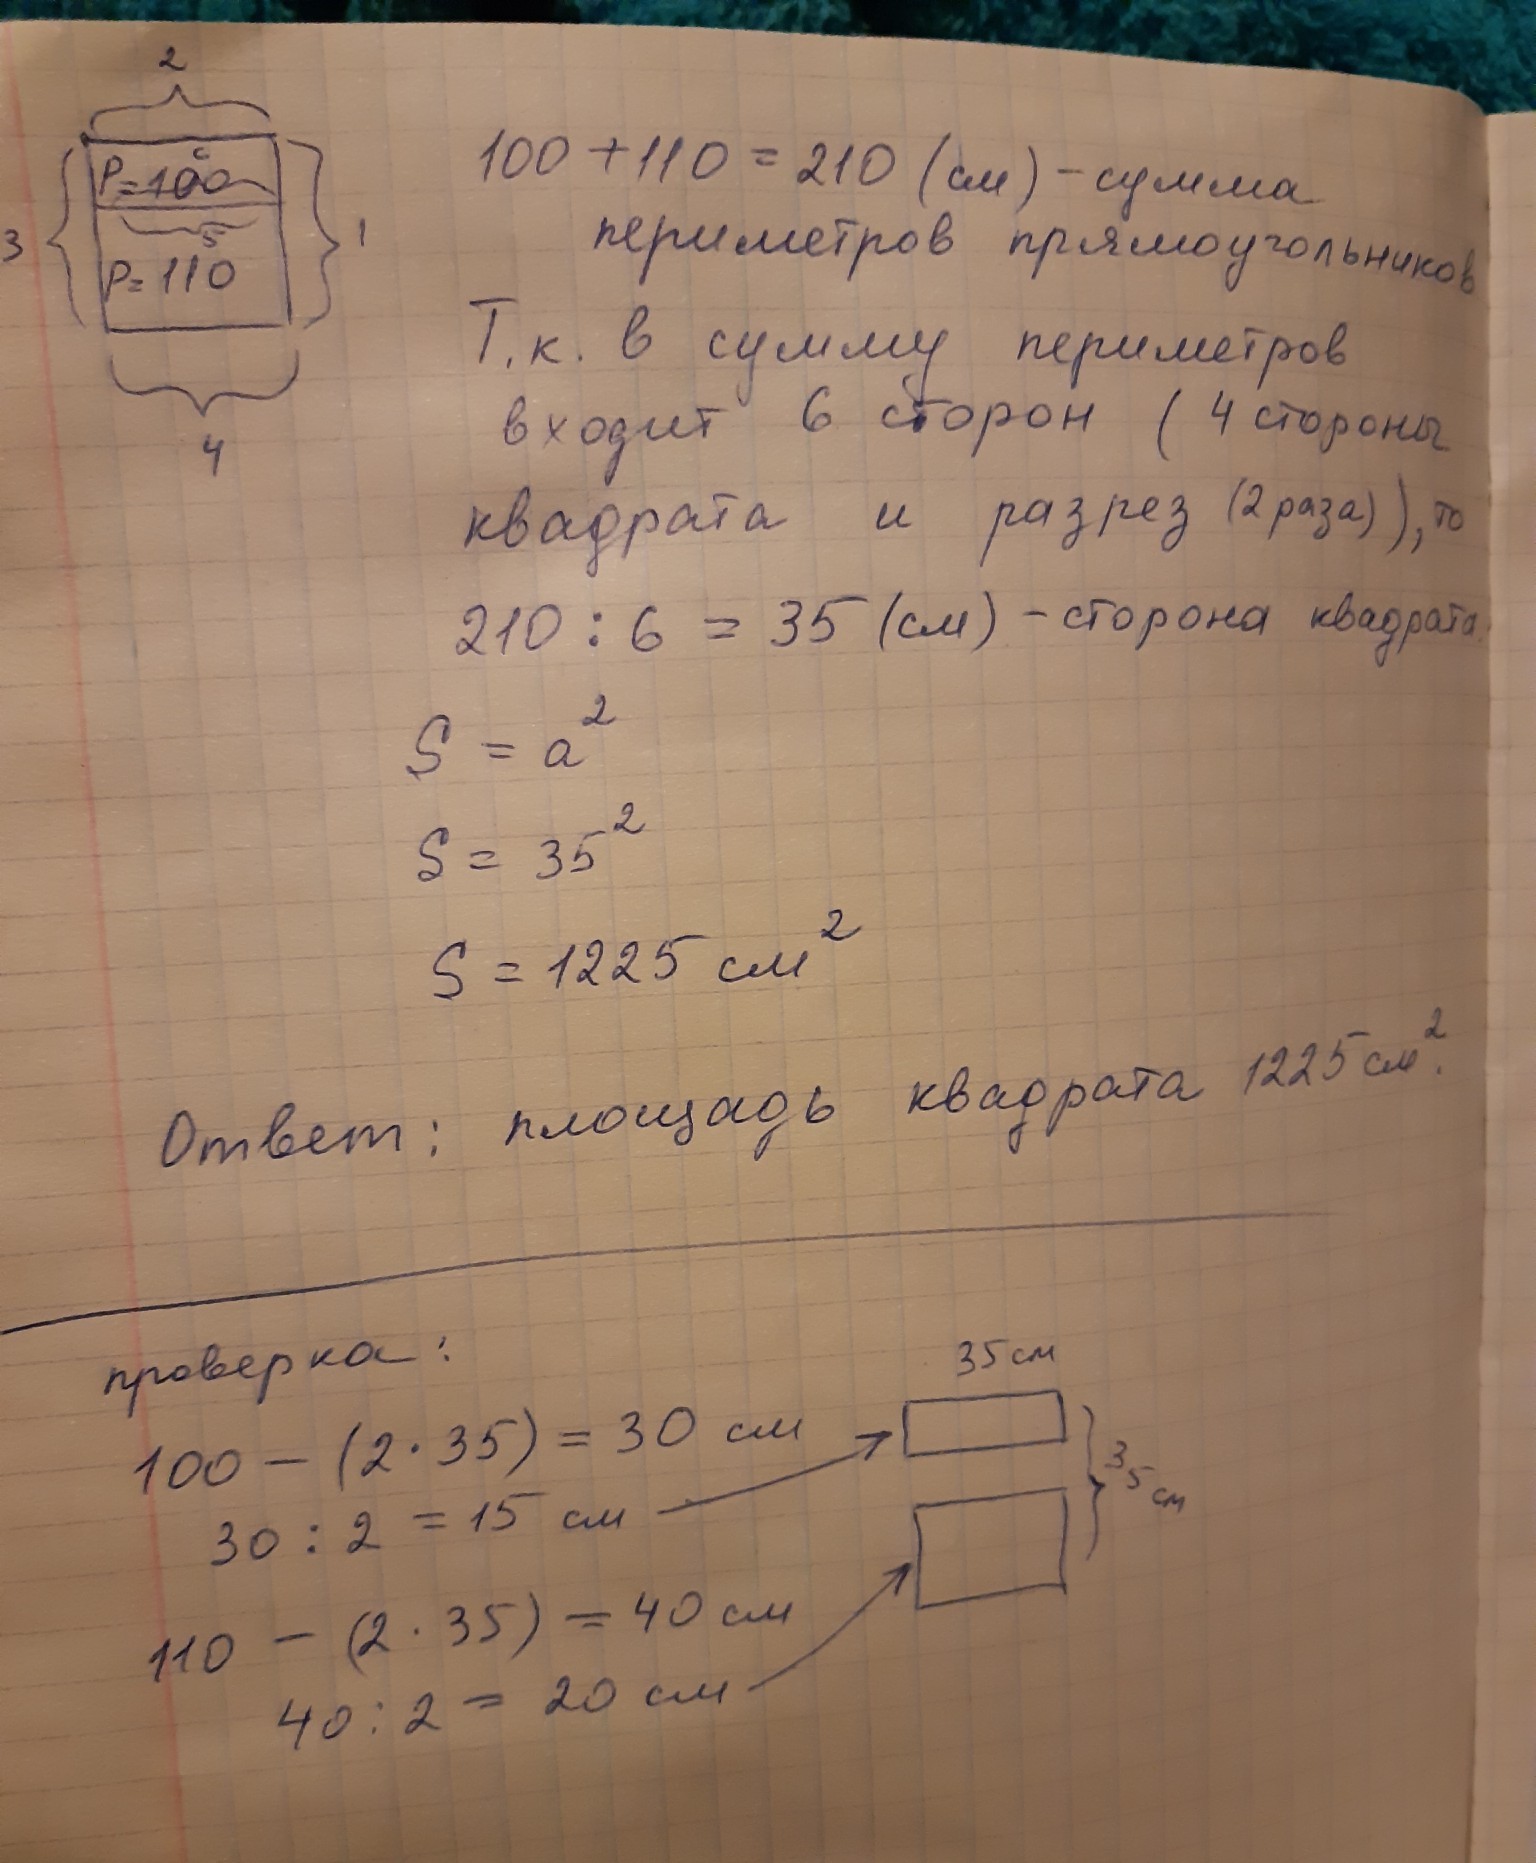 2
P=100
6
5
P=110
3
1
4
100+110=210 (см) - сумма
периметров прямоугольников
Т.к. в сумму периметров
входит 6 сторон (4 стороны
квадрата и разрез (2 раза)), то
210 : 6 = 35 (см) - сторона квадрата.
S = a²
S = 35²
S = 1225 см²
Ответ: площадь квадрата 1225 см².
проверка:
100 - (2·35) = 30 см
30 : 2 = 15 см
110 - (2·35) = 40 см
40 : 2 = 20 см
35 см
35 см